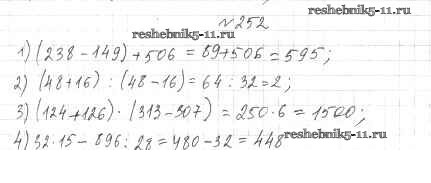 reshebnik.ru
№252
reshebnik.ru
1) (238-149)+506 = 89+506 = 595;
2) (48+16) : (48-16) = 64 : 32 = 2;
3) (124+126) · (313-307) = 250·6 = 1500;
4) 32·15 - 896 : 28 = 480-32 = 448
reshebnik.ru